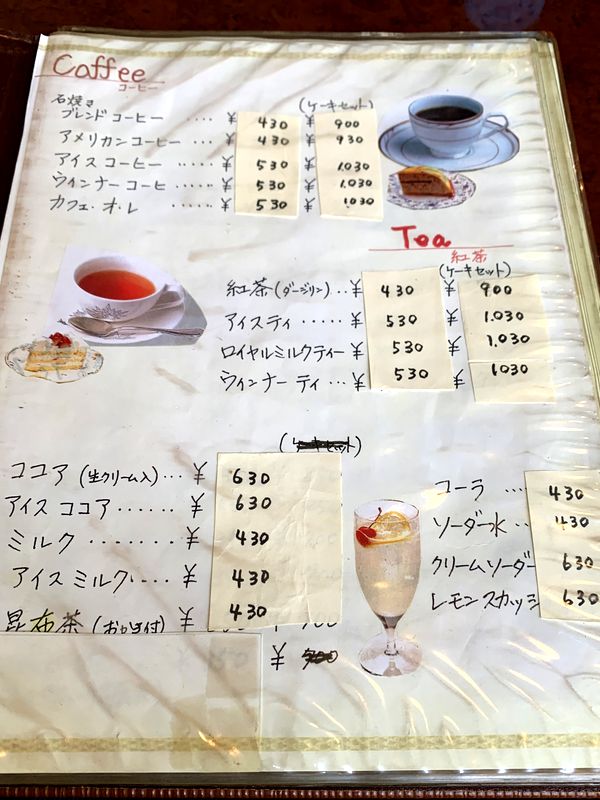 Coffee
コーヒー
(ケーキセット)
石焼き
ブレンド コーヒー ···· ¥ 430 ¥ 900
アメリカンコーヒー ··· ¥ 430 ¥ 930
アイス コーヒー ····· ¥ 530 ¥ 1.030
ウィンナー コーヒ ······ ¥ 530 ¥ 1.030
カフェ・オ・レ ······ ¥ 530 ¥ 1030
Tea
紅茶
(ケーキセット)
紅茶 (ダージリン)... ¥ 430 ¥ 900
アイスティ ····· ¥ 530 ¥ 1.030
ロイヤルミルクティー ¥ 530 ¥ 1.030
ウィンナー ティ ... ¥ 530 ¥ 1030
(ケーキセット)
ココア (生クリーム入) ... ¥ 630
アイス ココア ······ ¥ 630
ミルク ······· ¥ 430
アイス ミルク ···· ¥ 430
昆布茶 (おかき付) ¥ 430
¥
コーラ ... 430
ソーダー水 ·· 430
クリームソーダー 630
レモンスカッシ 630